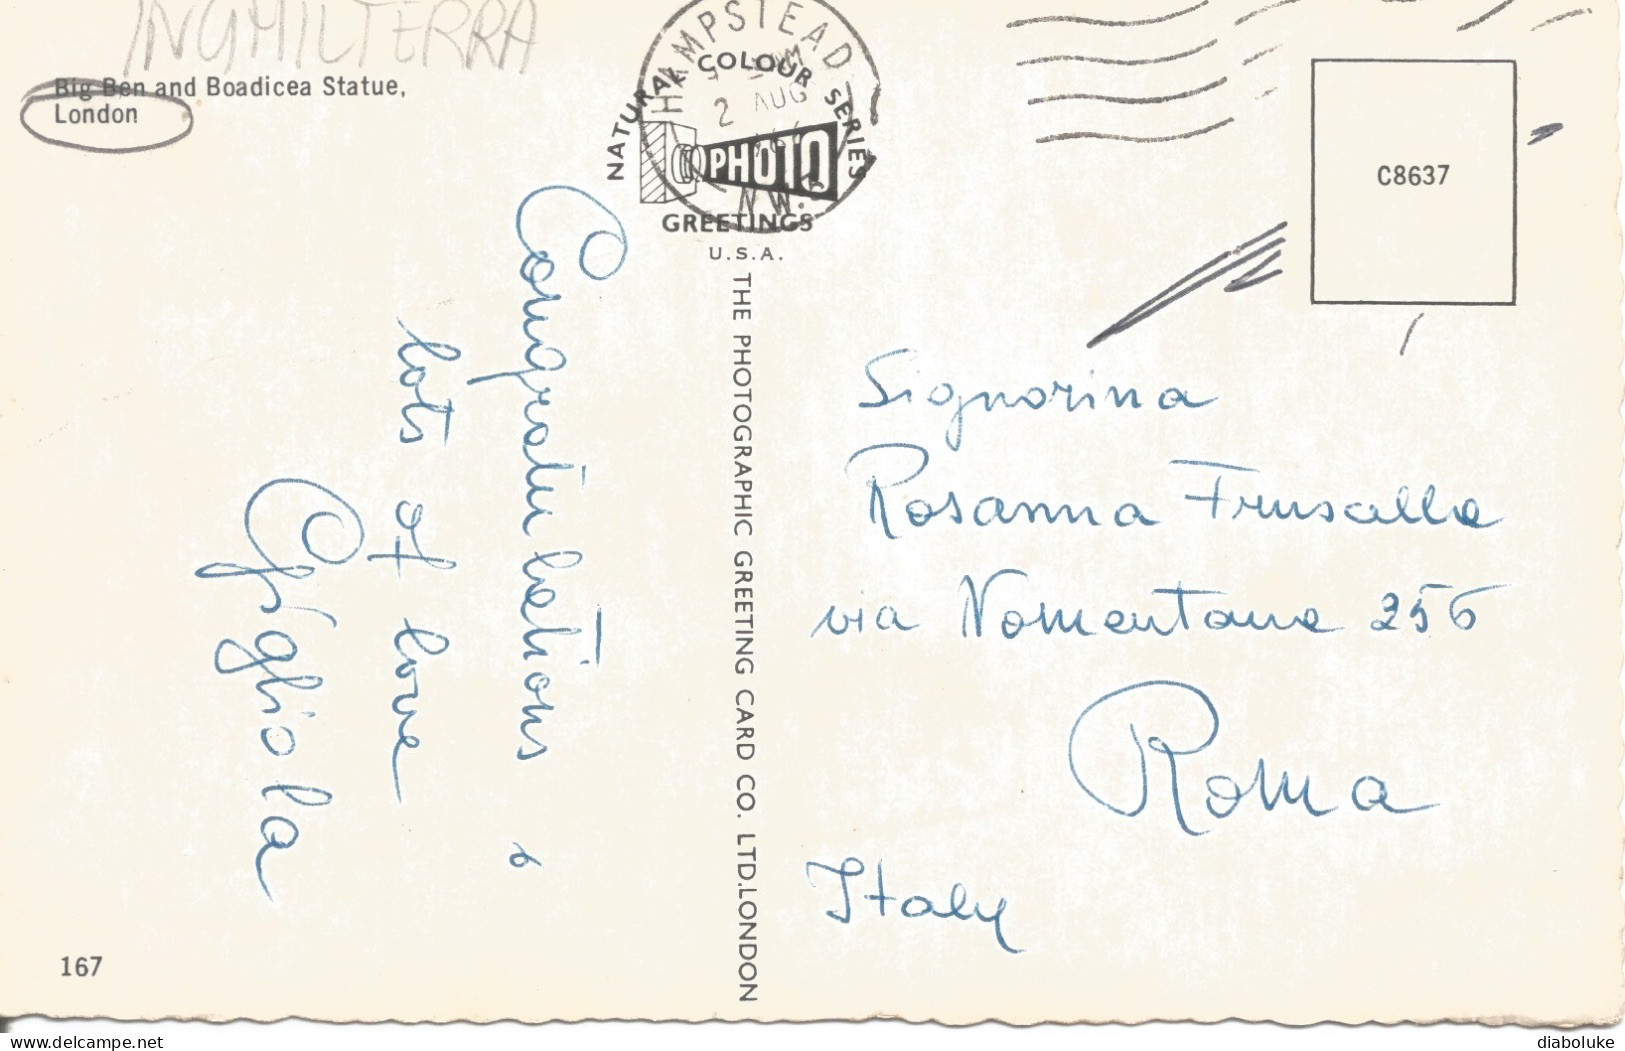 INGHILTERRA
Big Ben and Boadicea Statue,
London
HAMPSTEAD
2 AUG
N.W.3
NATURAL COLOUR SERIES
PHOTO
GREETINGS
U.S.A.
THE PHOTOGRAPHIC GREETING CARD CO. LTD.LONDON
C8637
Congratulations &
lots of love
Signorina
Rosanna
via Nomentana 256
Roma
Italy
167
delcampe.net
diaboluke